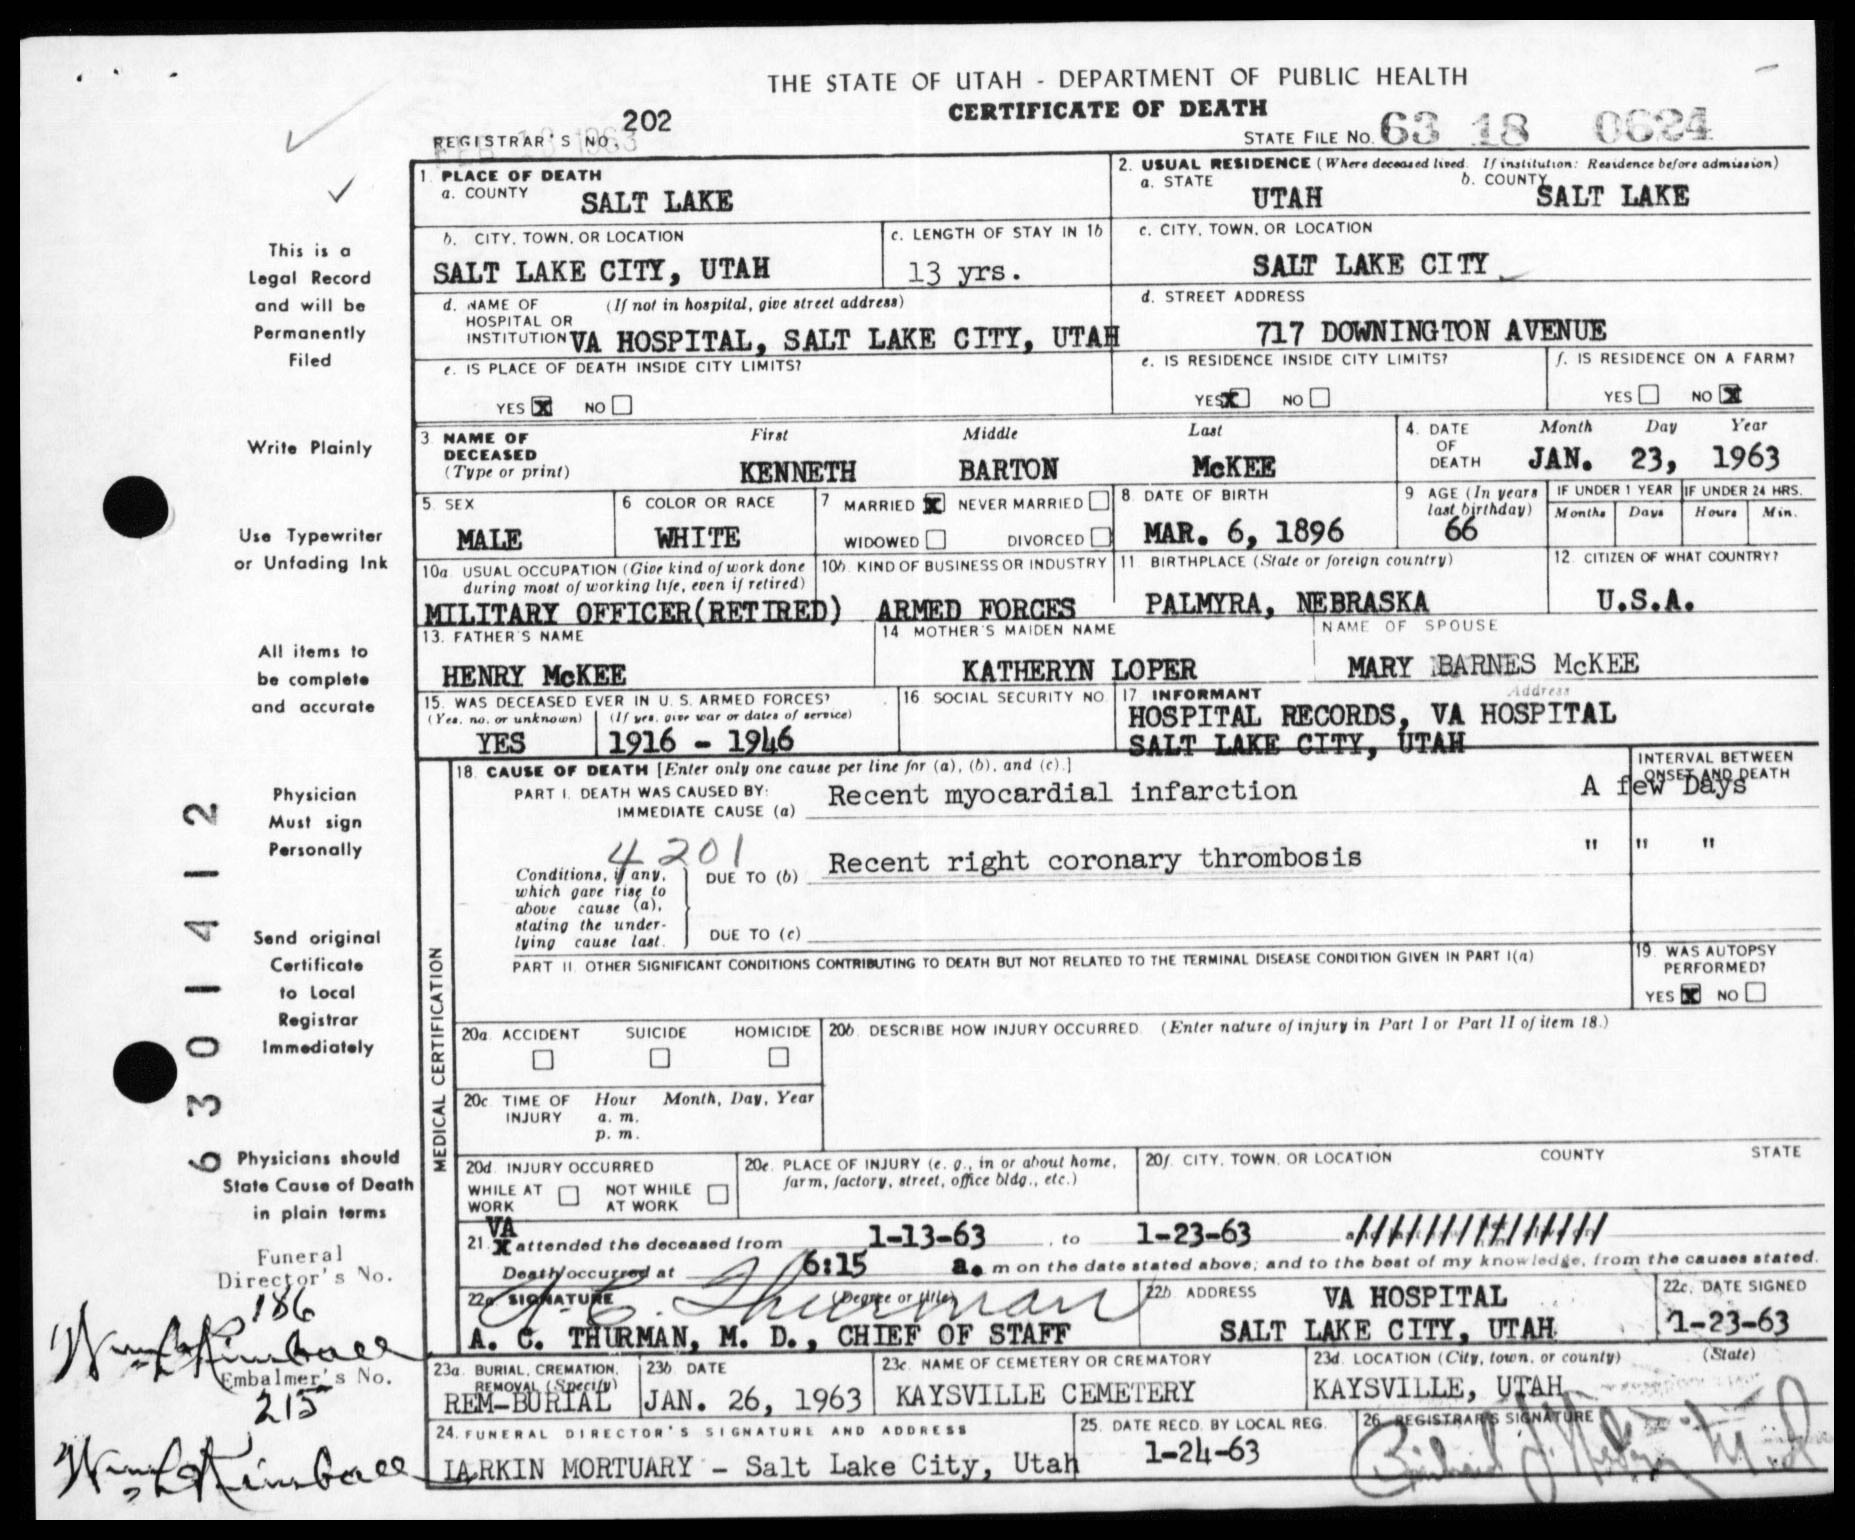 THE STATE OF UTAH - DEPARTMENT OF PUBLIC HEALTH
CERTIFICATE OF DEATH
REGISTRAR'S NO. 202
STATE FILE NO. 63 18 0624
1. PLACE OF DEATH
a. COUNTY SALT LAKE
2. USUAL RESIDENCE (Where deceased lived. If institution: Residence before admission)
a. STATE UTAH b. COUNTY SALT LAKE
b. CITY, TOWN, OR LOCATION
SALT LAKE CITY, UTAH
c. LENGTH OF STAY IN 1b
13 yrs.
c. CITY, TOWN, OR LOCATION
SALT LAKE CITY
d. NAME OF (If not in hospital, give street address)
HOSPITAL OR
INSTITUTION VA HOSPITAL, SALT LAKE CITY, UTAH
d. STREET ADDRESS
717 DOWNINGTON AVENUE
e. IS PLACE OF DEATH INSIDE CITY LIMITS?
YES X NO
e. IS RESIDENCE INSIDE CITY LIMITS?
YES X NO
f. IS RESIDENCE ON A FARM?
YES NO X
3. NAME OF DECEASED
(Type or print)
First Middle Last
KENNETH BARTON McKEE
4. DATE OF DEATH
Month Day Year
JAN. 23, 1963
5. SEX
MALE
6 COLOR OR RACE
WHITE
7 MARRIED X NEVER MARRIED
WIDOWED DIVORCED
8. DATE OF BIRTH
MAR. 6, 1896
9 AGE (In years
last birthday)
66
IF UNDER 1 YEAR
Months Days
IF UNDER 24 HRS.
Hours Min.
10a. USUAL OCCUPATION (Give kind of work done
during most of working life, even if retired)
MILITARY OFFICER(RETIRED)
10b. KIND OF BUSINESS OR INDUSTRY
ARMED FORCES
11 BIRTHPLACE (State or foreign country)
PALMYRA, NEBRASKA
12. CITIZEN OF WHAT COUNTRY?
U.S.A.
13. FATHER'S NAME
HENRY McKEE
14 MOTHER'S MAIDEN NAME
KATHERYN LOPER
NAME OF SPOUSE
MARY BARNES McKEE
15. WAS DECEASED EVER IN U. S. ARMED FORCES?
(Yes, no, or unknown) (If yes, give war or dates of service)
YES 1916 - 1946
16 SOCIAL SECURITY NO.
17 INFORMANT Address
HOSPITAL RECORDS, VA HOSPITAL
SALT LAKE CITY, UTAH
MEDICAL CERTIFICATION
18. CAUSE OF DEATH [Enter only one cause per line for (a), (b), and (c).]
INTERVAL BETWEEN
ONSET AND DEATH
PART I. DEATH WAS CAUSED BY:
IMMEDIATE CAUSE (a) Recent myocardial infarction A few Days
4201
Conditions, if any,
which gave rise to
above cause (a),
stating the under-
lying cause last.
DUE TO (b) Recent right coronary thrombosis " " "
DUE TO (c)
PART II. OTHER SIGNIFICANT CONDITIONS CONTRIBUTING TO DEATH BUT NOT RELATED TO THE TERMINAL DISEASE CONDITION GIVEN IN PART I(a)
19. WAS AUTOPSY
PERFORMED?
YES X NO
20a. ACCIDENT SUICIDE HOMICIDE
20b. DESCRIBE HOW INJURY OCCURRED. (Enter nature of injury in Part I or Part II of item 18.)
20c. TIME OF INJURY Hour Month, Day, Year
a. m.
p. m.
20d. INJURY OCCURRED
WHILE AT WORK NOT WHILE AT WORK
20e. PLACE OF INJURY (e. g., in or about home,
farm, factory, street, office bldg., etc.)
20f. CITY, TOWN, OR LOCATION COUNTY STATE
VA
21. X attended the deceased from 1-13-63, to 1-23-63
Death occurred at 6:15 a. m on the date stated above; and to the best of my knowledge, from the causes stated.
22a. SIGNATURE (Degree or title)
A. C. Thurman
A. C. THURMAN, M. D., CHIEF OF STAFF
22b. ADDRESS VA HOSPITAL
SALT LAKE CITY, UTAH
22c. DATE SIGNED
1-23-63
23a. BURIAL, CREMATION,
REMOVAL (Specify)
REM-BURIAL
23b. DATE
JAN. 26, 1963
23c. NAME OF CEMETERY OR CREMATORY
KAYSVILLE CEMETERY
23d. LOCATION (City, town, or county) (State)
KAYSVILLE, UTAH
24. FUNERAL DIRECTOR'S SIGNATURE AND ADDRESS
LARKIN MORTUARY - Salt Lake City, Utah
25. DATE RECD. BY LOCAL REG.
1-24-63
26. REGISTRAR'S SIGNATURE
This is a
Legal Record
and will be
Permanently
Filed
Write Plainly
Use Typewriter
or Unfading Ink
All items to
be complete
and accurate
Physician
Must sign
Personally
Send original
Certificate
to Local
Registrar
Immediately
Physicians should
State Cause of Death
in plain terms
6301412
Funeral
Director's No.
186
Wm L Kimball
Embalmer's No.
215
Wm L Kimball